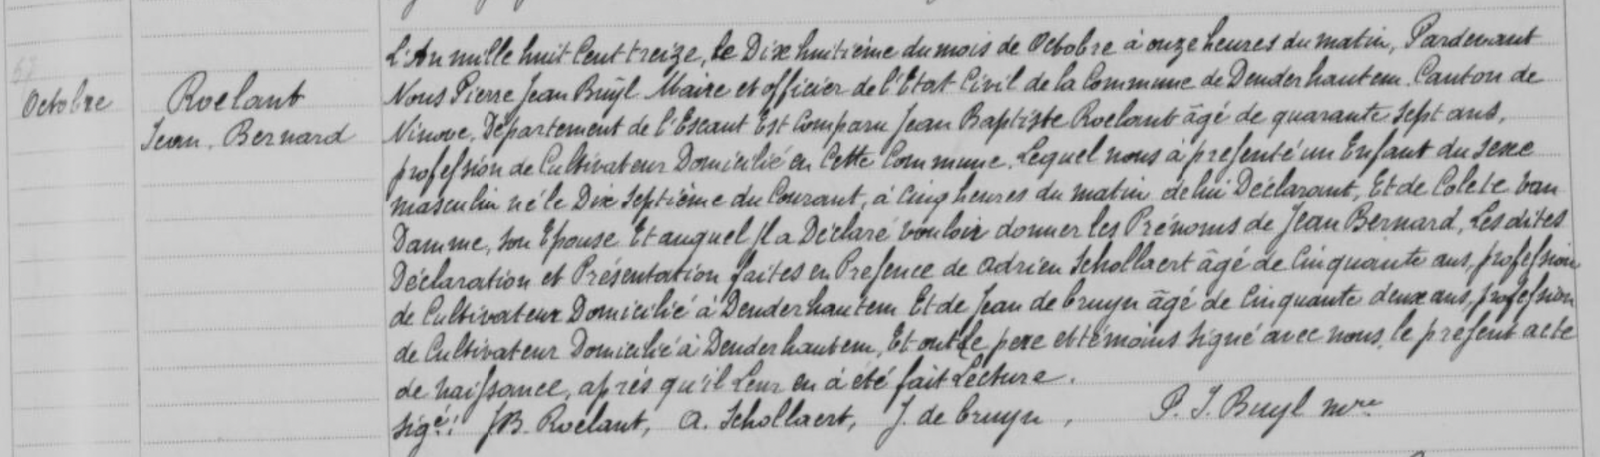 Octobre
Roelant
Jean, Bernard
L'An mille huit Cent treize, le Dix huitième du mois de Octobre à onze heures du matin, Pardevant
Nous Pierre Jean Buÿl Maire et officier de l'Etat Civil de la Commune de Denderhautem. Canton de
Ninove, Département de l'Escaut Est Comparu Jean Baptiste Roelant âgé de quarante Sept ans,
profession de Cultivateur Domicilié en Cette Commune. Lequel nous à presenté un Enfant du Sexe
masculin né le Dix Septième du Courant, à Cinq heures du matin de lui Déclarant, Et de Colete Van
Damme, son Epouse Et auquel Il a Déclaré vouloir donner les Prénoms de Jean Bernard, Les dites
Déclaration et Présentation faites en Presence de Adrien Schollaert âgé de Cinquante ans, profession
de Cultivateur Domicilié à Denderhautem Et de Jean de Cruyn âgé de Cinquante deux ans, profession
de Cultivateur Domicilié à Denderhautem, Et ont le pere et témoins signé avec nous, le present acte
de naissance, après qu'il Leur en à été fait Lecture.
sigé: JB. Roelant, A. Schollaert, J. de Cruyn, P. J. Buyl mre